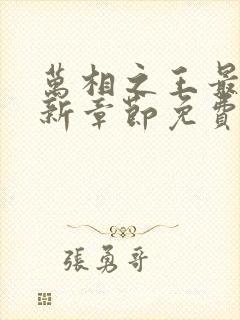 萬相之王最
新章節免費
張勇哥